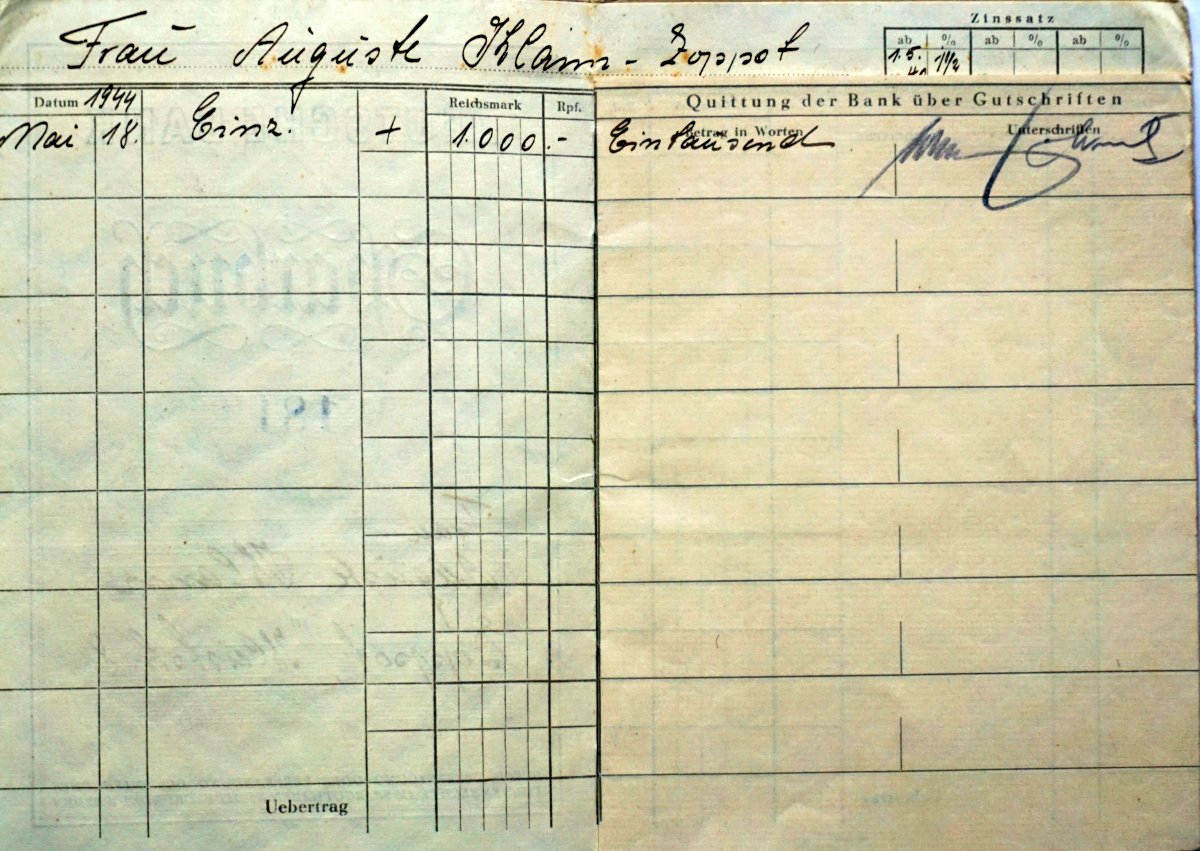 Frau Auguste Klann - Zoppot
Zinssatz
ab % ab % ab %
1.5. 1½
Datum 1944 Reichsmark Rpf. Quittung der Bank über Gutschriften
Betrag in Worten Unterschriften
Mai 18. Einz. + 1.000.- Eintausend
Uebertrag